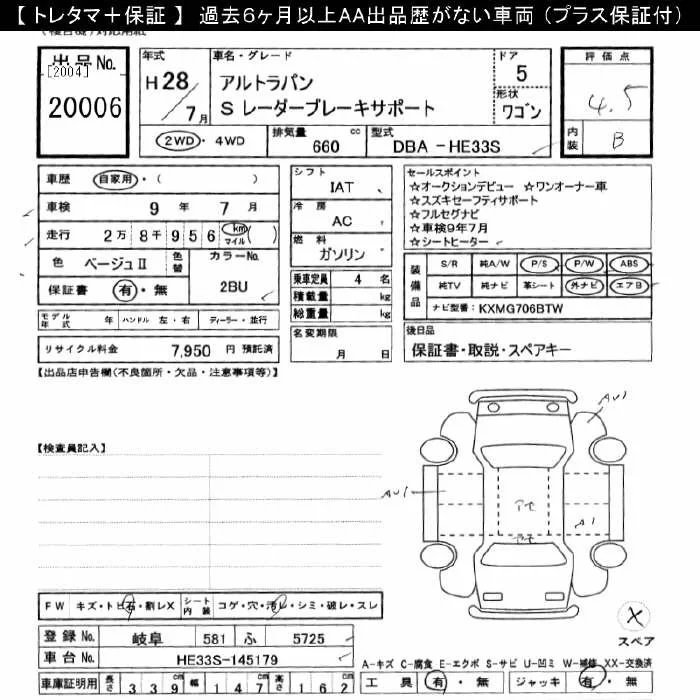 【 トレタマ＋保証 】 過去6ヶ月以上AA出品歴がない車両 (プラス保証付)
出品No.
[2004]
20006
年式
H 28 / 7 月
車名・グレード
アルトラパン
S レーダーブレーキサポート
ドア
5
形状
ワゴン
評価点
4.5
内装
B
2WD・4WD
排気量 660 cc
型式 DBA－HE33S
車歴 自家用・( )
車検 9 年 7 月
走行 2万 8千 9 5 6 km マイル ( )
色 ベージュⅡ
色替
カラーNo.
2BU
保証書 有・無
シフト
IAT
冷房
AC
燃料
ガソリン
乗車定員 4 名
積載量 kg
総重量 kg
セールスポイント
☆オークションデビュー ☆ワンオーナー車
☆スズキセーフティサポート
☆フルセグナビ
☆車検9年7月
☆シートヒーター
装備品
S/R 純A/W P/S P/W ABS
純TV 純ナビ 革シート 外ナビ エアB
ナビ型番: KXMG706BTW
モデル年式 年 ハンドル 左・右 ディーラー・並行
リサイクル料金 7,950 円 預託済
名変期限
月 日
後日品
保証書・取説・スペアキー
【出品店申告欄(不良箇所・欠品・注意事項等)】
【検査員記入】
AU1
AU1
アモ
A1
アモ
FW キズ・トビ石・割レX
シート内装 コゲ・穴・汚レ・シミ・破レ・スレ
登録No. 岐阜 581 ふ 5725
車台No. HE33S-145179
車庫証明用 長さ 3 3 9 cm 幅 1 4 7 cm 高さ 1 6 2 cm
X
スペア
A-キズ C-腐食 E-エクボ S-サビ U-凹ミ W-補修 XX-交換済
工具 有・無 ジャッキ 有・無